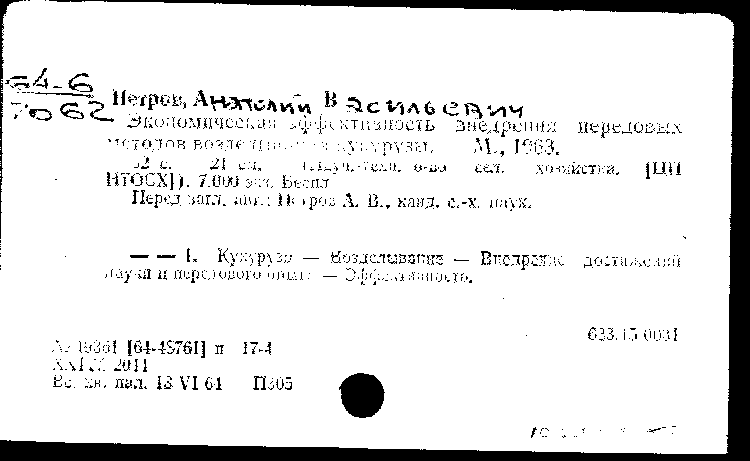 64-6
7062
Петров, Анатолий Васильевич
Экономическая эффективность внедрения передовых
методов возделывания кукурузы. М., 1963.
52 с. 21 см. (Науч.-техн. о-во сел. хозяйства. [ЦП
НТОСХ]). 7.000 экз. Беспл
Перед загл. авт.: Петров А. В., канд. с.-х. наук.
— — 1. Кукуруза — Возделывание — Внедрение достижений
науки и передового опыта — Эффективность.
633.15-0031
№ 19361 [64-48761] п 17-4
2011
Вс. кн. пал. 13 VI 64 П305